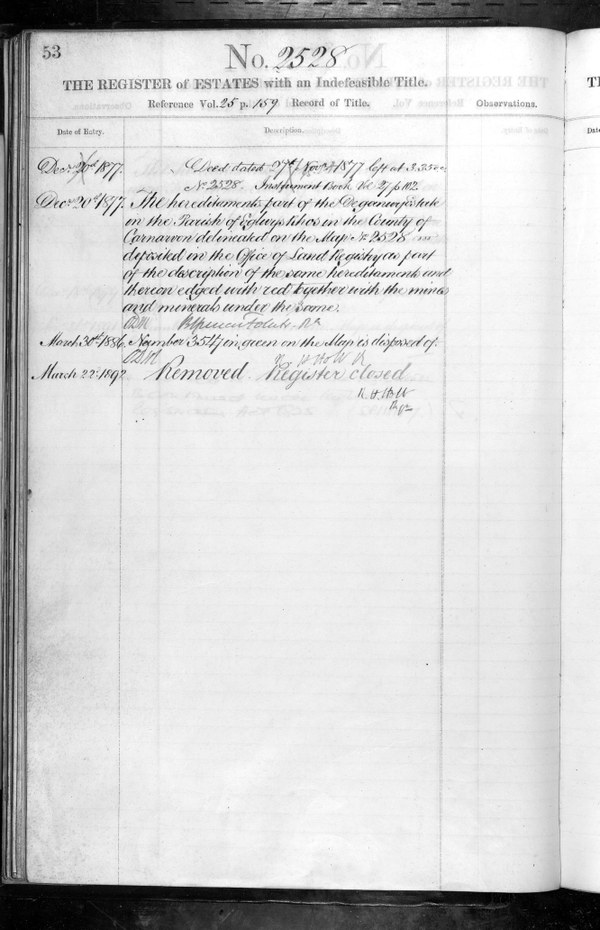 53
No. 2528
THE REGISTER of ESTATES with an Indefeasible Title.
Reference Vol. 25 p. 159 Record of Title. Observations.
Date of Entry. Description.
Decr 20th 1877. Deed dated 27th Novr 1877 left at 3.35
No 2528. Instrument Book Vol 27 p 102.
Decr 20th 1877. The hereditaments part of the Deganwy Estate
in the Parish of Eglwys Rhos in the County of
Carnarvon delineated on the Map No 2528
deposited in the Office of Land Registry as part
of the description of the same hereditaments and
thereon edged with red together with the mines
and minerals under the same.
March 30th 1886. Number 3547 in green on the Map is disposed of.
R H HoW R
March 22 1892 Removed. Register closed
R. H. HoW